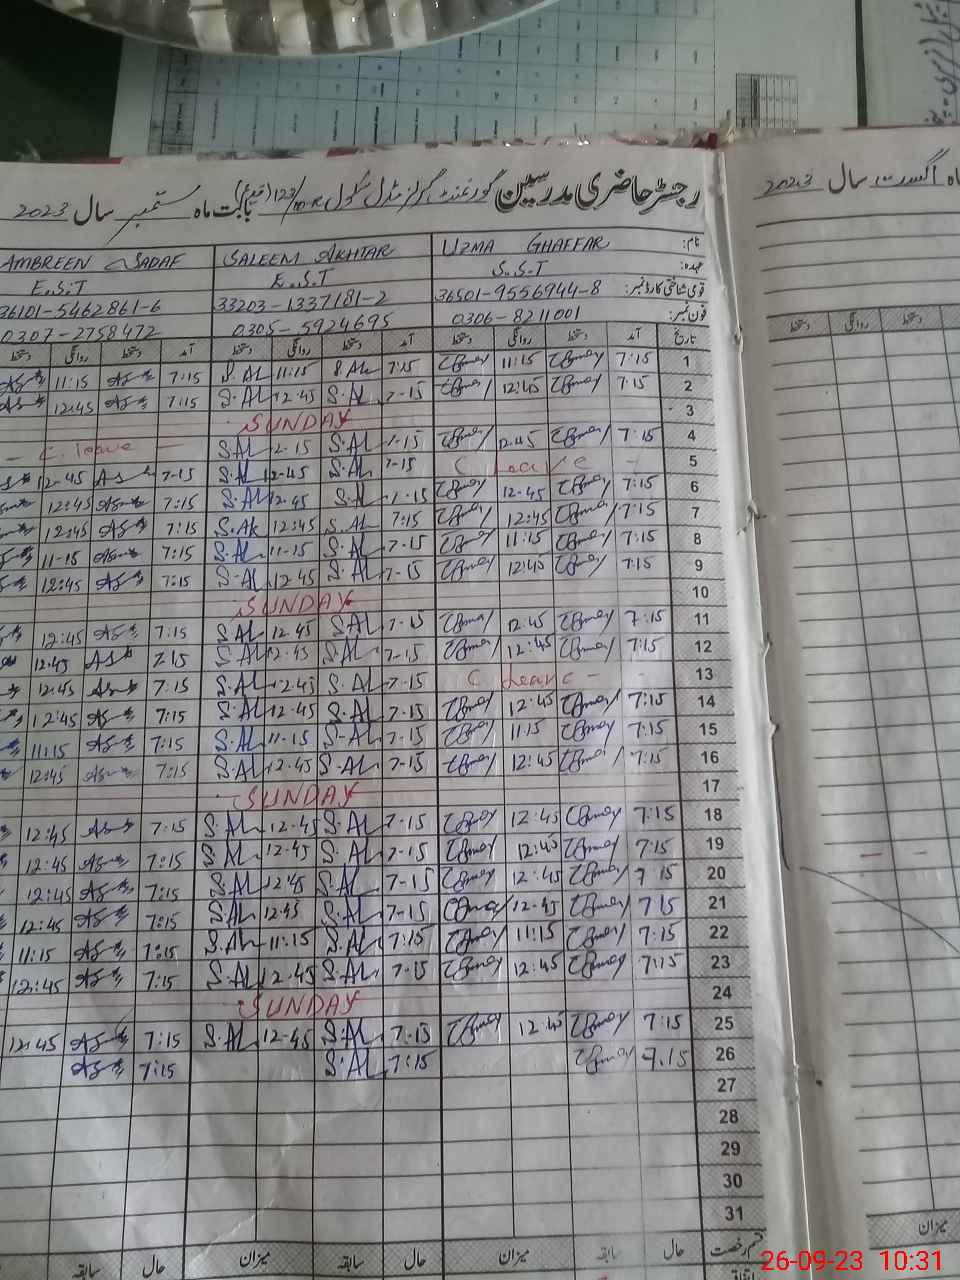 رجسٹر حاضری مدرسین گورنمنٹ گرلز مڈل سکول 123/m.R بابت ماہ ستمبر سال 2023
ماہ اگست سال 2023
نام: UZMA GHAFFAR SALEEM AKHTAR AMBREEN SADAF
عہدہ: S.S.T E.S.T E.S.T
قومی شناختی کارڈ نمبر: 36501-9556944-8 33203-1337181-2 36101-5462861-6
فون نمبر: 0306-8211001 0305-5924695 0307-2758472
تاریخ آمد دستخط روانگی دستخط آمد دستخط روانگی دستخط آمد دستخط روانگی دستخط
دستخط روانگی دستخط
1 7:15 11:15 7:15 S.AL 11:15 S.AL 7:15 11:15
2 7:15 12:45 7-15 S.AL 12.45 S.AL 7:15 12.45
3 SUNDAY
4 7:15 12.45 7-15 S.AL 12.15 S.AL - C. leave -
5 C leave - 7-15 S.AL 12-45 S.AL 7-15 12-45
6 7:15 12-45 7-15 S.AL 12.45 S.AL 7:15 12:45
7 7:15 12:45 7:15 S.AL 12:45 S.AL 7:15 12:45
8 7:15 11:15 7-15 S.AL 11-15 S.AL 7:15 11-15
9 7:15 12:45 7-15 S.AL 12.45 S.AL 7:15 12:45
10 SUNDAY
11 7:15 12.45 7-15 S.AL 12.45 S.AL 7:15 12:45
12 7:15 12:45 7-15 S.AL 12.45 S.AL 7.15 12.45
13 C Leave - 7-15 S.AL 12.45 S.AL 7:15 12.45
14 7:15 12.45 7-15 S.AL 12.45 S.AL 7:15 12:45
15 7:15 11:15 7-15 S.AL 11-15 S.AL 7:15 11:15
16 7:15 12:45 7-15 S.AL 12.45 S.AL 7:15 12:45
17 SUNDAY
18 7:15 12:45 7-15 S.AL 12-45 S.AL 7:15 12:45
19 7:15 12:45 7-15 S.AL 12.45 S.AL 7:15 12:45
20 7 15 12.45 7-15 S.AL 12.45 S.AL 7:15 12:45
21 7 15 12-45 7-15 S.AL 12.45 S.AL 7:15 12:45
22 7:15 11:15 7:15 S.AL 11:15 S.AL 7:15 11:15
23 7:15 12:45 7-15 S.AL 12.45 S.AL 7:15 12:45
24 SUNDAY
25 7:15 12:45 7.15 S.AL 12-45 S.AL 7:15 12:45
26 7.15 7:15 S.AL 7:15
27
28
29
30
31
قسم رخصت حال سابقہ میزان حال سابقہ میزان حال سابقہ
میزان
26-09-23 10:31